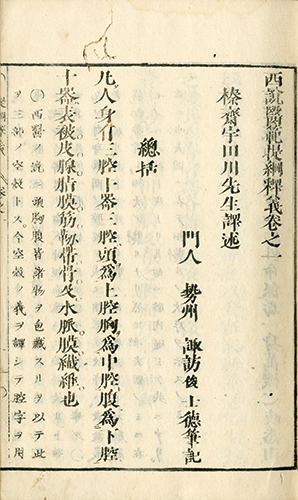 西說醫範提綱釋義卷之一
榛齋宇田川先生譯述
門人 勢州 諏訪俊士德筆記
總括
凡人身有三腔十器三腔頭爲上腔胸爲中腔腹爲下腔
十器表被皮腺脂膜筋靱帶骨及水脈膜纖維也
西醫ノ說ニ頭胸腹皆諸物ヲ包藏スルヲ以テ此
ヲ三箇ノ空殼トス今空殼ノ義ヲ譯シテ腔字ヲ用